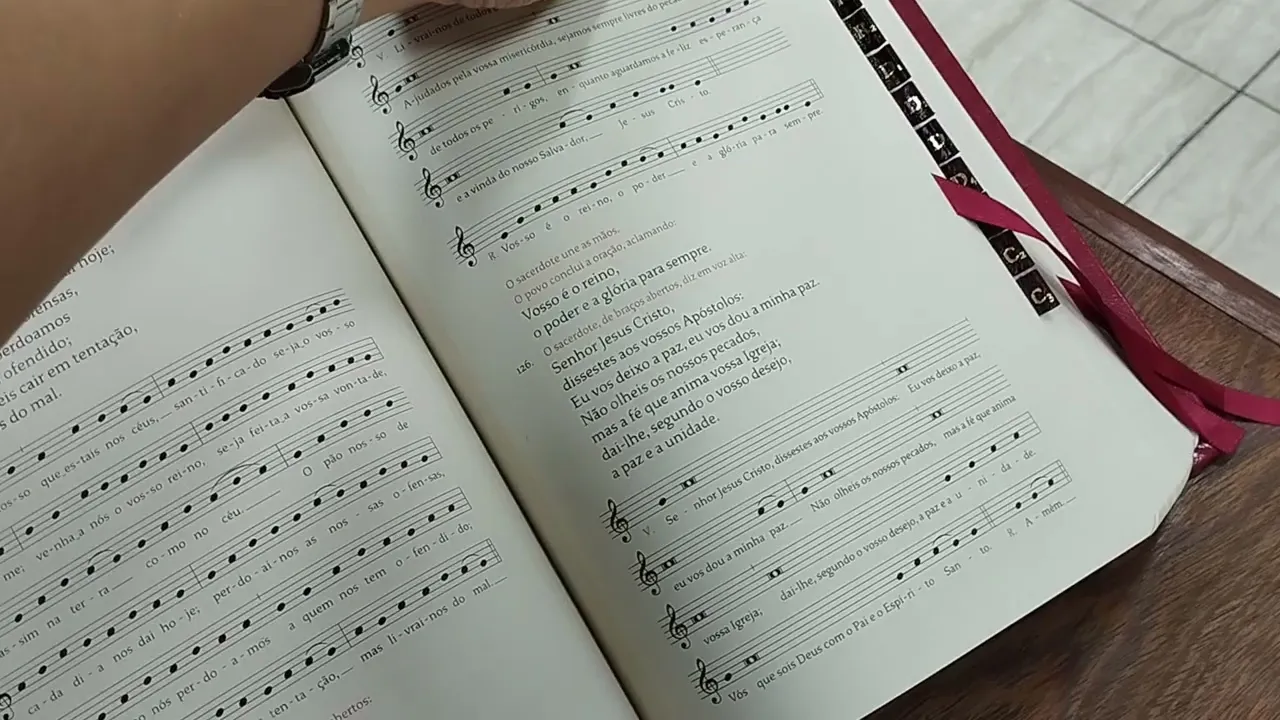 hoje;
ofensas,
perdoamos
ofendido;
cair em tentação,
do mal.
que es-tais nos céus,___ san-ti-fi-ca-do se-ja_o vos-so
me; ve-nha_a nós o vos-so rei-no, se-ja fei-ta_a vos-sa von-ta-de,
as-sim na ter-ra___ co-mo no céu.___ O pão nos-so de
ca-da di-a nos dai ho-je; per-do-ai-nos as nos-sas o-fen-sas,
nós per-do-a-mos a quem nos tem o-fen-di-do;
ten-ta-ção,___ mas li-vrai-nos do mal.___
abertos:
V. Li-vrai-nos de todos
A-judados pela vossa misericórdia, sejamos sempre livres do pecado
de todos os pe-ri-gos, en-quanto aguardamos a fe-liz es-pe-ran-ça
e a vinda do nosso Salva-dor,___ Je-sus Cris-to.
R. Vos-so é o rei-no, o po-der___ e a gló-ria pa-ra sem-pre.
O sacerdote une as mãos.
O povo conclui a oração, aclamando:
Vosso é o reino,
o poder e a glória para sempre.
126. O sacerdote, de braços abertos, diz em voz alta:
Senhor Jesus Cristo,
dissestes aos vossos Apóstolos:
Eu vos deixo a paz, eu vos dou a minha paz.
Não olheis os nossos pecados,
mas a fé que anima vossa Igreja;
dai-lhe, segundo o vosso desejo,
a paz e a unidade.
V. Se-nhor Jesus Cristo, dissestes aos vossos Apóstolos: Eu vos deixo a paz,
eu vos dou a minha paz.___ Não olheis os nossos pecados, mas a fé que anima
vossa Igreja; dai-lhe, segundo o vosso desejo, a paz e a u-ni-da-de.
Vós que sois Deus com o Pai e o Espí-ri-to San-to. R. A-mém.___
C2
C3